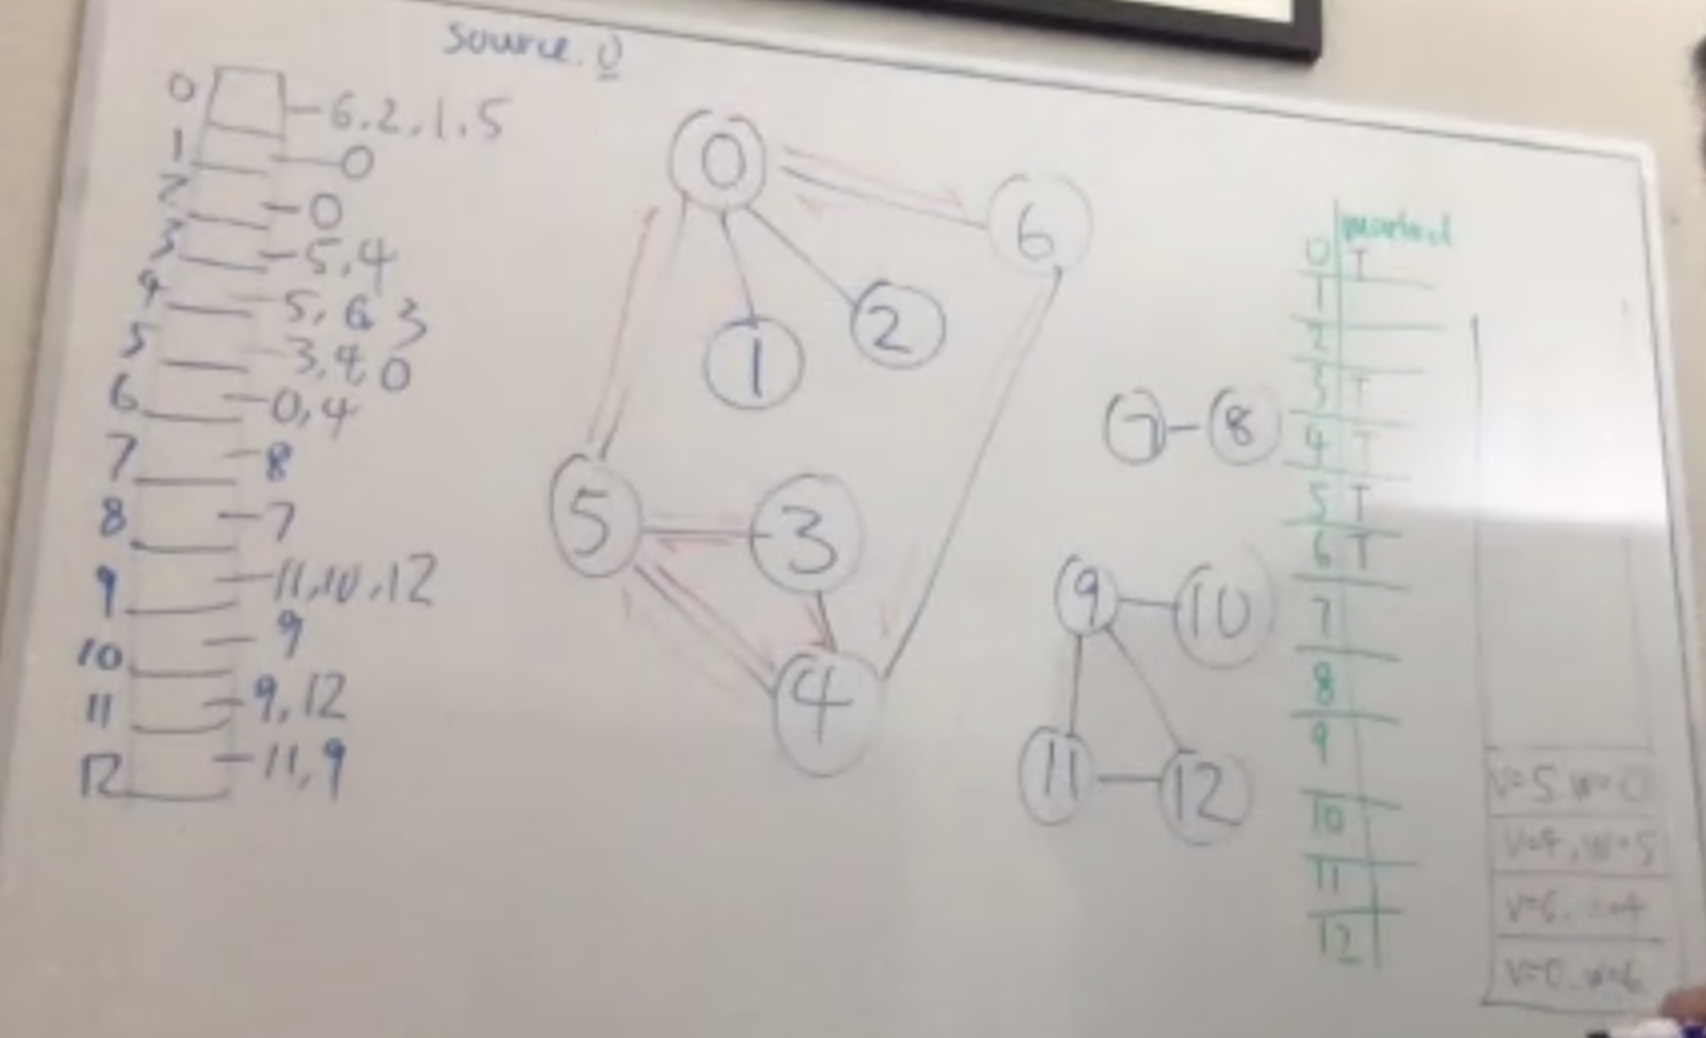 source. 0
0 -6,2,1,5
1 -0
2 -0
3 -5,4
4 -5,6 3
5 -3,4,0
6 -0,4
7 -8
8 -7
9 -11,10,12
10 -9
11 -9,12
12 -11,9
0
6
1
2
5
3
4
7 - 8
9
10
11
12
marked
0 T
1
2
3 T
4 T
5 T
6 T
7
8
9
10
11
12
v=5 w=0
v=4, w=5
v=6. w=4
v=0. w=6